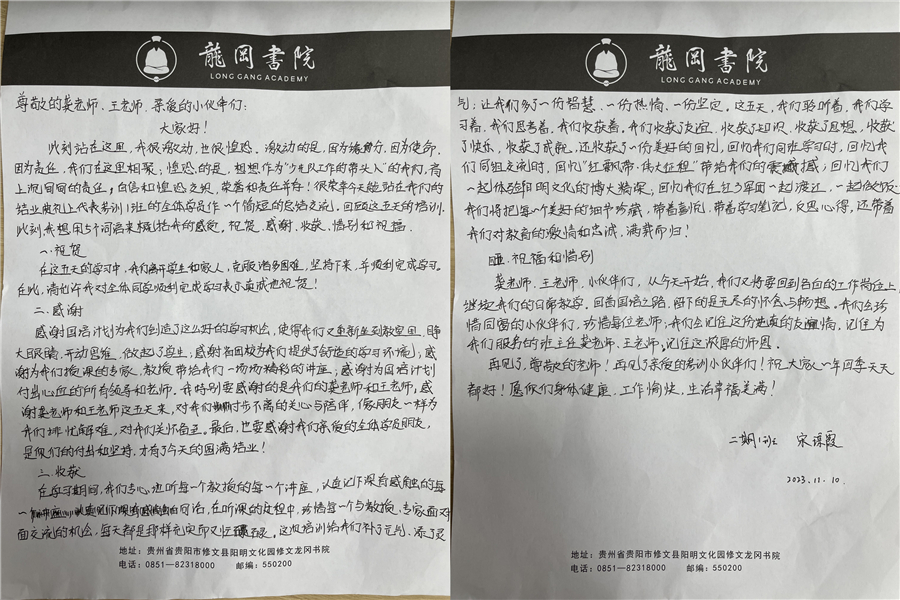 龍岡書院
LONG GANG ACADEMY
尊敬的娄老师、王老师、亲爱的小伙伴们:
大家好!
此刻站在这里,我很激动,也很惶恐。激动的是,因为缘分,因为使命,
因为责任,我们在这里相聚;惶恐的是,想想作为“少先队工作的带头人”的我们,肩
上沉甸甸的责任,自信和惶恐交织,荣誉和责任并存!很荣幸今天能站在我们的
结业典礼上代表劳训1班的全体学员作一个简短的总结交流,回顾这五天的培训,
此刻我想用5个词语来概括我的感受,祝贺、感谢、收获、惜别和祝福。
一、祝贺
在这五天的学习中,我们离开学生和家人,克服诸多困难,坚持下来,并顺利完成学习。
在此,请允许我对全体同学顺利完成学习表示真诚地祝贺!
二、感谢
感谢国培计划为我们创造了这么好的学习机会,使得我们又重新坐到教室里,睁
大眼睛、开动思维、做起了学生;感谢各园校为我们提供了舒适的学习环境;感
谢为我们授课的专家、教授带给我们一场场精彩的讲座;感谢为国培计划
付出心血的所有领导和老师。我特别要感谢的是我们的娄老师和王老师,感
谢娄老师和王老师这五天来,对我们时时寸步不离的关心与陪伴,像朋友一样为
我们排忧解难,对我们关怀备至。最后,也要感谢我们亲爱的全体学员朋友,
是你们的付出和坚持,才有了今天的圆满结业!
三、收获
在学习期间,我们专心聆听每一个教授的每一个讲座,认真记下深有感触的每
一句话,在听课的过程中,珍惜每一个与教授、专家面对
面交流的机会,每天都是那样充实而又忙碌。这次培训给我们补了元气、添了灵
地址:贵州省贵阳市修文县阳明文化园修文龙冈书院
电话:0851—82318000 邮编:550200
龍岡書院
LONG GANG ACADEMY
气;让我们多了一份智慧、一份热情、一份坚定。这五天,我们聆听着,我们学
习着,我们思考着,我们收获着。我们收获了友谊,收获了知识,收获了思想,收获
了快乐,收获了成就,还收获了一份美好的回忆,回忆我们同班学习时,回忆我
们同组交流时,回忆“红飘带·伟大征程”带给我们的震撼,回忆我们
一起体验阳明文化的博大精深;回忆我们在红3军团一起渡江、一起做饭。
我们将把每一个美好的细节珍藏,带着喜悦,带着学习笔记,反思心得,还带着
我们对教育的激情和忠诚,满载而归!
四、祝福和惜别
娄老师、王老师、小伙伴们,从今天开始,我们又将要回到各自的工作岗位上
继续我们的日常教学。回首国培之路,留下的是无尽的怀念与畅想。我们会珍
惜同窗的小伙伴们,珍惜每位老师;我们会记住这份真的友谊情,记住为
我们服务的班主任娄老师、王老师,记住这深厚的师恩。
再见了,尊敬的老师!再见了亲爱的劳训小伙伴们!祝大家一年四季天天
都好!愿你们身体健康、工作愉快,生活幸福美满!
二期1班 宋琼霞
2023.11.10
地址:贵州省贵阳市修文县阳明文化园修文龙冈书院
电话:0851—82318000 邮编:550200